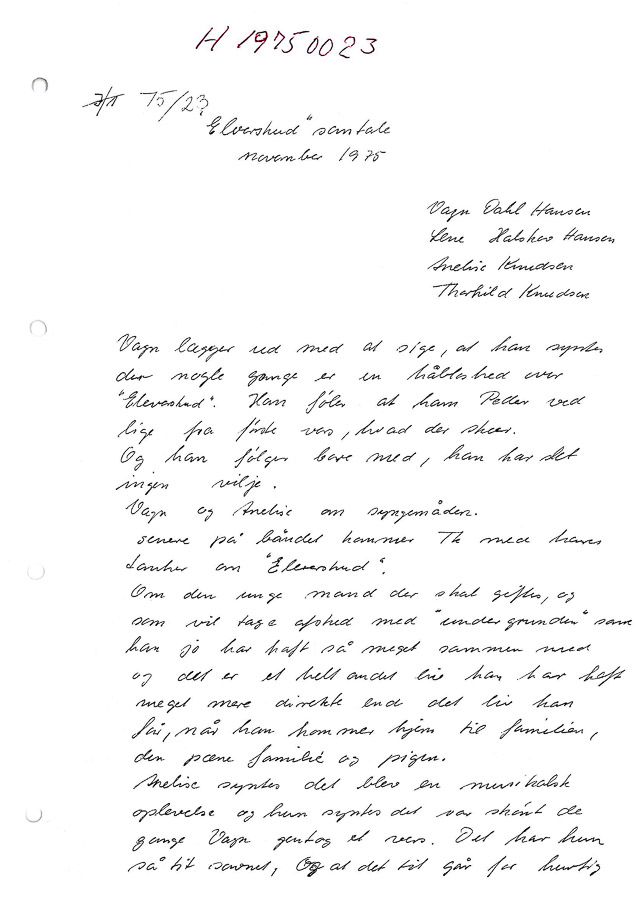 H 19750023
75/23
"Elverskud" samtale
november 1975
Vagn Dahl Hansen
Lene Halskov Hansen
Anelise Knudsen
Thorkild Knudsen
Vagn lægger ud med at sige, at han syntes
der nogle gange er en håbløshed over
"Eleverskud". Han føler at ham Peder ved
lige fra første vers, hvad der sker.
Og han følger bare med, han har det
ingen vilje.
Vagn og Anelise om syngemåden.
senere på båndet kommer Th med hans
tanker om "Eleverskud".
Om den unge mand der skal giftes, og
som vil tage afsked med "undergrunden" som
han jo har haft så meget sammen med
og det er et helt andet liv han har haft
meget mere direkte end det liv han
får, når han kommer hjem til familien,
den pæne familie og pigen.
Anelise syntes det blev en musikalsk
oplevelse og hun syntes det var skønt de
gange Vagn gentog et vers. Det har hun
så tit savnet, Og at det tit går for hurtig